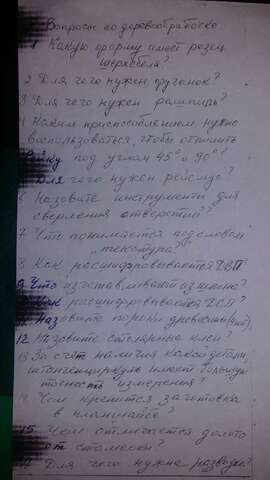 Вопросы по деревообработке
1 Какую форму имеет резец
шерхебеля?
2 Для чего нужен фуганок?
3 Для чего нужен рашпиль?
4 Каким приспособлением нужно
воспользоваться, чтобы отпилить
рейку под углом 45° и 90°?
Для чего нужен рейсмус?
6 Назовите инструменты для
сверления отверстий?
7 Что понимается под словом
„текстура"?
8 Как расшифровывается ДВП
9 Что изготавливают из шпона?
Как расшифровывается ДСП?
Назовите пороки древесины
12 Назовите столярные клеи?
13 За счёт наличия какой детали
штангенциркуль имеет большую
точность измерения?
14 Чем крепится заготовка
в планшайбе?
15 Чем отличается долото
от стамески?
Для чего нужна разводка?